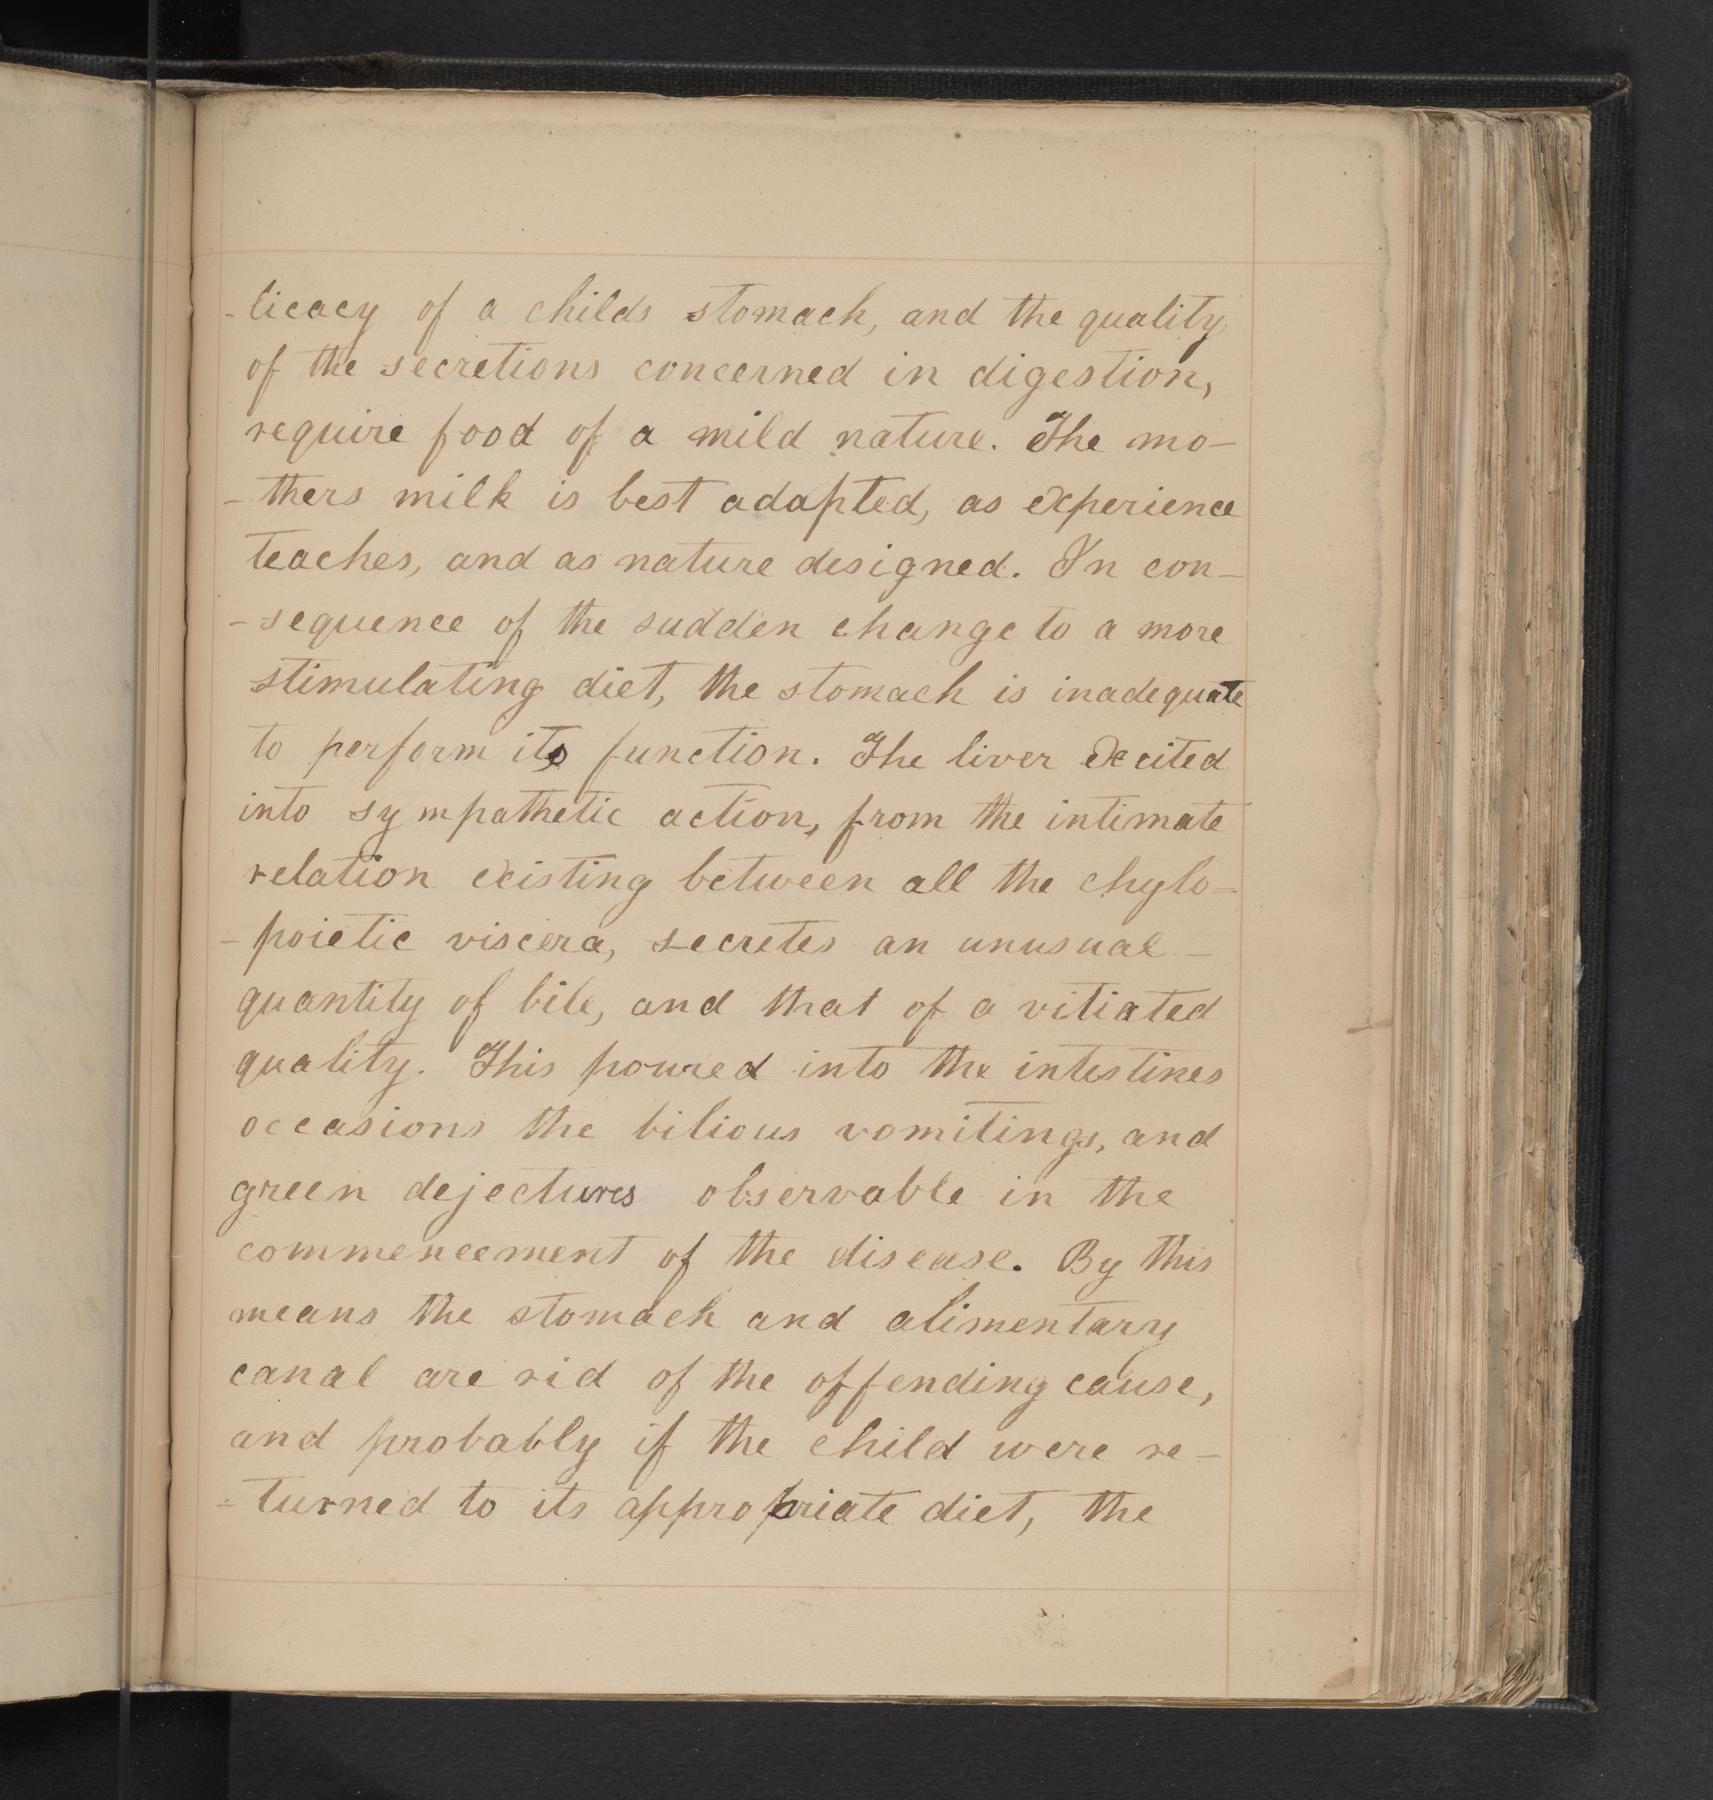 -licacy of a childs stomach, and the quality
of the secretions concerned in digestion,
require food of a mild nature. The mo-
-thers milk is best adapted, as experience
teaches, and as nature designed. In con-
-sequence of the sudden change to a more
stimulating diet, the stomach is inadequate
to perform its function. The liver excited
into sympathetic action, from the intimate
relation existing between all the chylo-
-poietic viscera, secretes an unusual -
quantity of bile, and that of a vitiated
quality. This poured into the intestines
occasions the bilious vomitings, and
green dejectures observable in the
commencement of the disease. By this
means the stomach and alimentary
canal are rid of the offending cause,
and probably if the child were re-
-turned to its appropriate diet, the